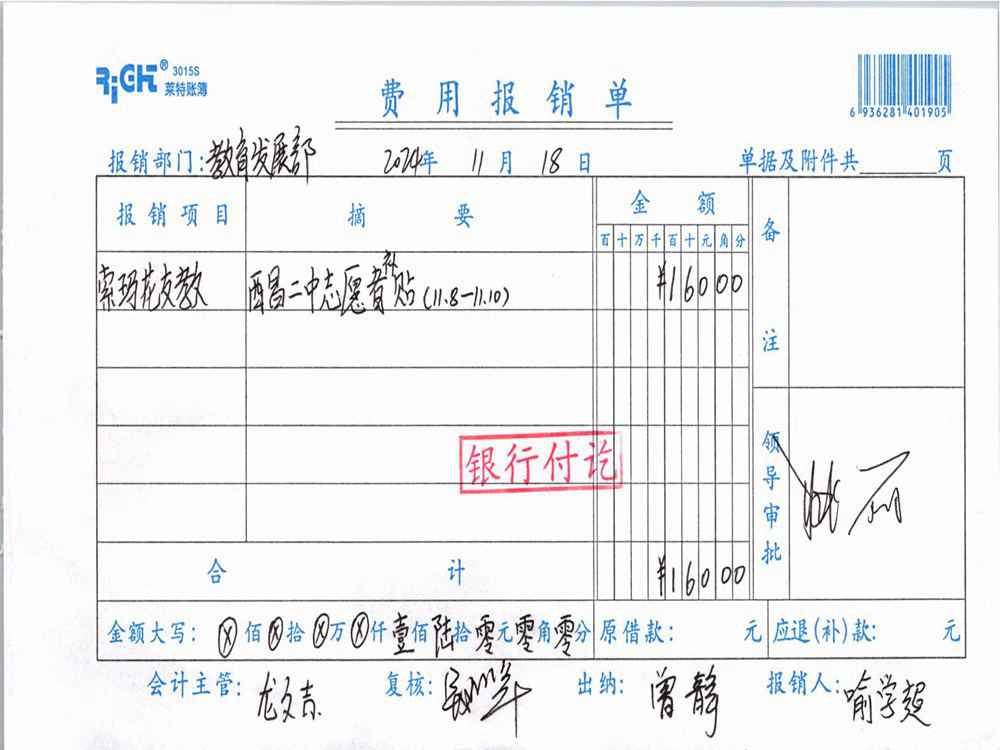 RiGHT® 3015S
莱特账簿
费用报销单
6 936281 401905
报销部门:教育发展部 2024年 11月 18日 单据及附件共 页
报销项目 摘要 金额 备注
百十万千百十元角分
索玛花支教 西昌二中志愿者补贴(11.8-11.10) ¥16000
银行付讫
领导审批
合计 ¥16000
金额大写: ⓧ佰ⓧ拾ⓧ万ⓧ仟壹佰陆拾零元零角零分 原借款: 元 应退(补)款: 元
会计主管: 龙文吉 复核: 出纳: 曾静 报销人: 喻学超